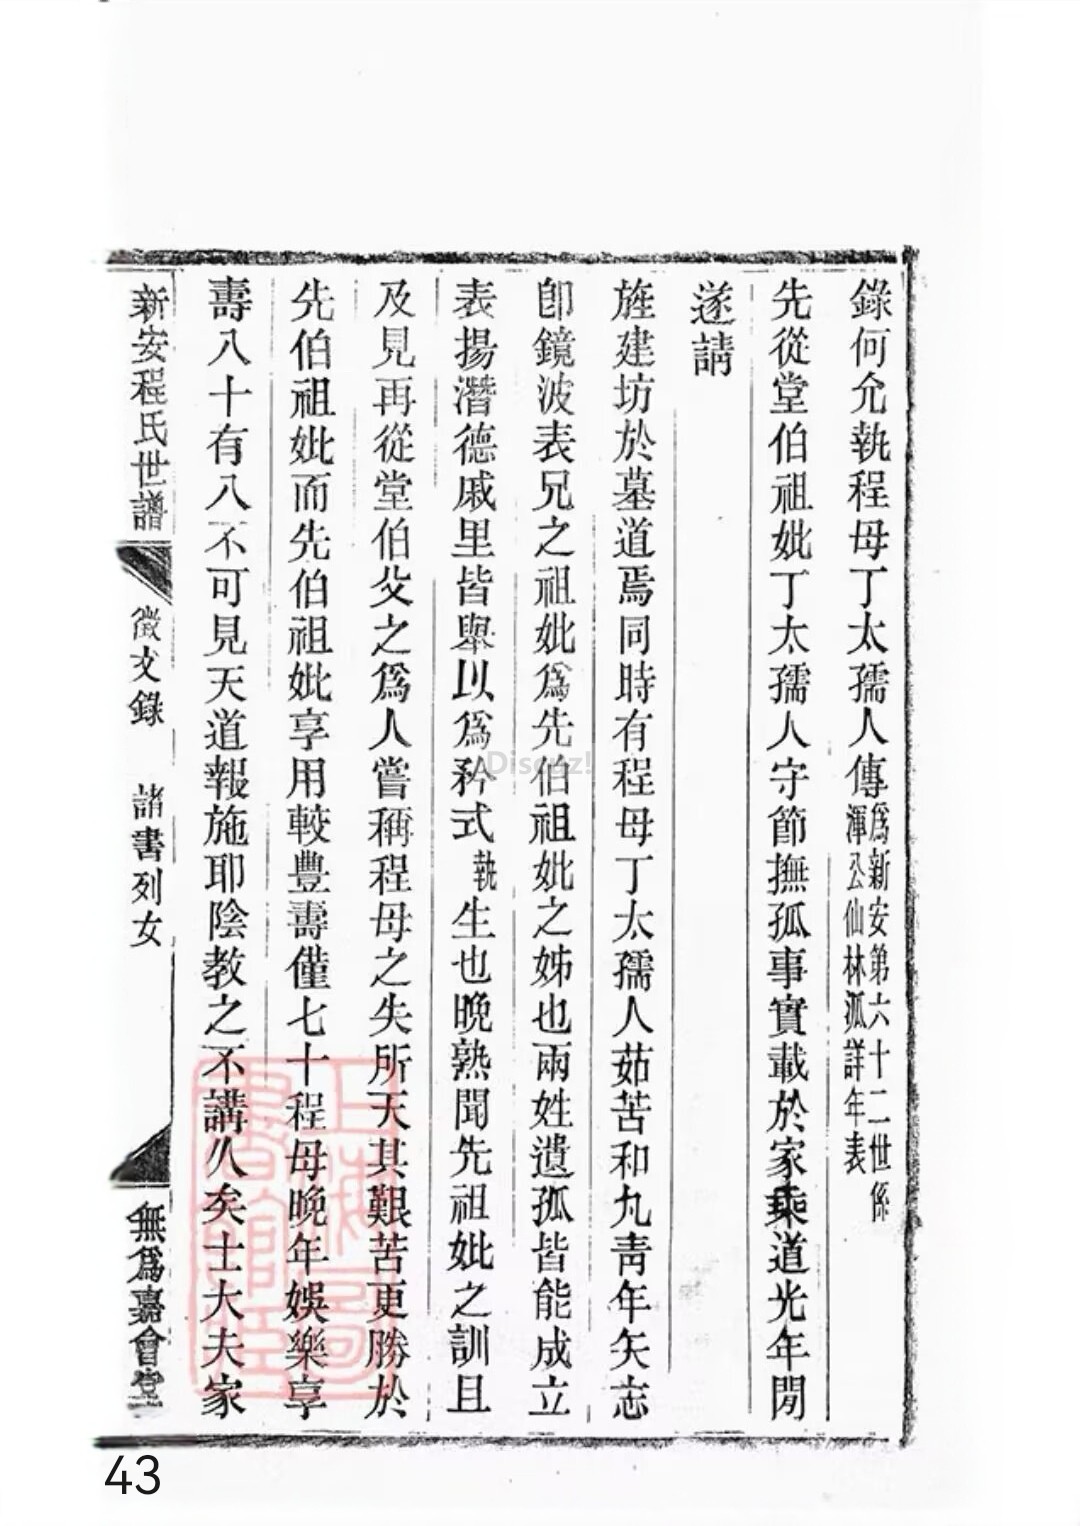 錄何允執程母丁太孺人傳爲新安第六十二世係
渾公仙林派詳年表
先從堂伯祖妣丁太孺人守節撫孤事實載於家乘道光年閒
遂請
旌建坊於墓道焉同時有程母丁太孺人茹苦和丸靑年矢志
卽鏡波表兄之祖妣爲先伯祖妣之姊也兩姓遺孤皆能成立
表揚潛德戚里皆舉以爲矜式執生也晩熟聞先祖妣之訓且
及見再從堂伯父之爲人嘗稱程母之失所天其艱苦更勝於
先伯祖妣而先伯祖妣享用較豐壽僅七十程母晩年娛樂享
壽八十有八不可見天道報施耶陰教之不講久矣士大夫家
新安程氏世譜
徵文錄 諸書列女
無爲嘉會堂
上海圖書館藏
Discuz!
43